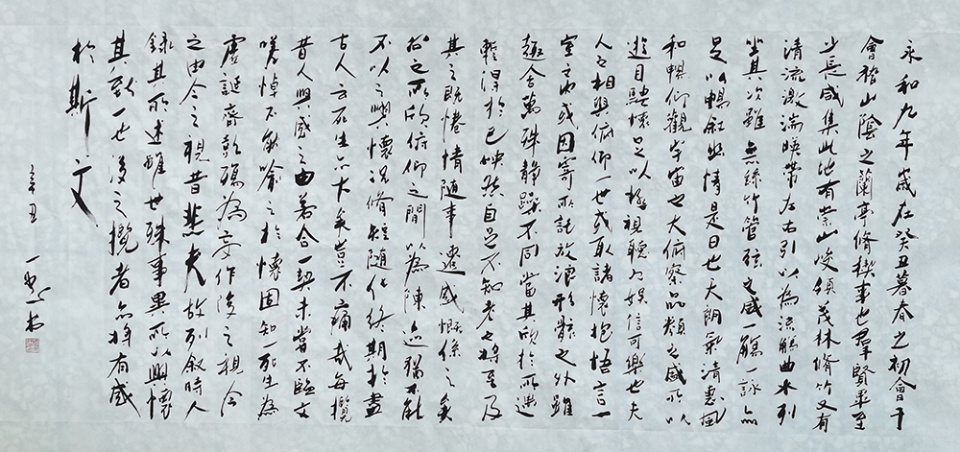 永和九年歲在癸丑暮春之初會于
會稽山陰之蘭亭脩稧事也羣賢畢至
少長咸集此地有崇山峻領茂林脩竹又有
清流激湍暎帶左右引以為流觴曲水列
坐其次雖無絲竹管弦之盛一觴一詠亦
足以暢敘幽情是日也天朗氣清惠風
和暢仰觀宇宙之大俯察品類之盛所以
遊目騁懷足以極視聽之娛信可樂也夫
人之相與俯仰一世或取諸懷抱悟言一
室之內或因寄所託放浪形骸之外雖
趣舍萬殊靜躁不同當其欣於所遇
蹔得於己怏然自足不知老之將至及
其之既惓情隨事遷感慨係之矣
向之所欣俯仰之間以為陳迹猶不能
不以之興懷況脩短隨化終期於盡
古人云死生亦大矣豈不痛哉每攬
昔人興感之由若合一契未嘗不臨文
嗟悼不能喻之於懷固知一死生為
虛誕齊彭殤為妄作後之視今
之由今之視昔悲夫故列敘時人
錄其所述雖世殊事異所以興懷
其致一也後之攬者亦將有感
於斯文
辛丑 一 書